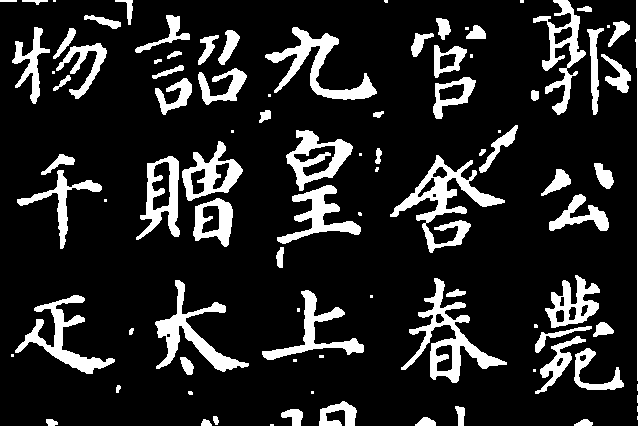 郭公薨
官舍春
九皇上聞
詔贈太
物千疋